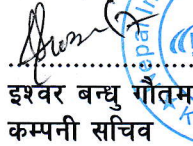 इश्वर बन्धु गौतम
कम्पनी सचिव